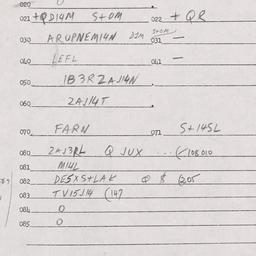 020 0
021 +QD14M S+OM 022 + QR
030 ARUPNEM14N 21M S+OM 031 —
040 LEFL 041 —
050 1B3RZAJ14N
060 2AJ14T
070 FARN 071 S+14SL
080 2AJ3RL Q JUX ... 108010
081 M14L
082 DE5XS+LAK @ $ 205
083 TV15J14 (147
084 0
085 0